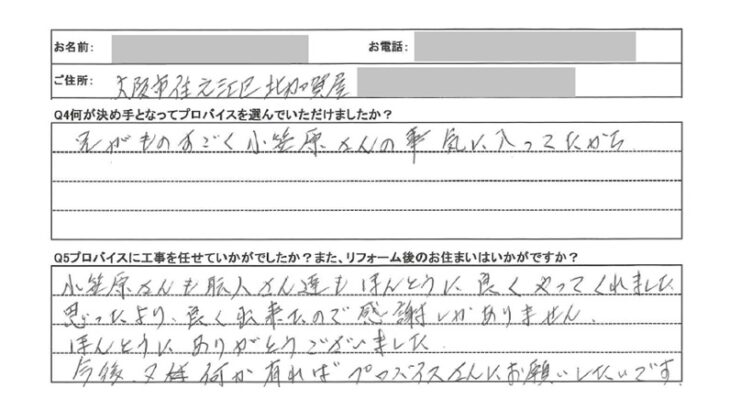 お名前: お電話:
ご住所: 大阪市住之江区北加賀屋
Q4何が決め手となってプロバイスを選んでいただけましたか?
ものすごく小笠原さんの事気に入ってたから
Q5プロバイスに工事を任せていかがでしたか?また、リフォーム後のお住まいはいかがですか?
小笠原さんも職人さん達もほんとうに良くやってくれました
思ったより、良く出来たので感謝しかありません、
ほんとうにありがとうございました
今後、又何か有ればプロバイスさんにお願いしたいです